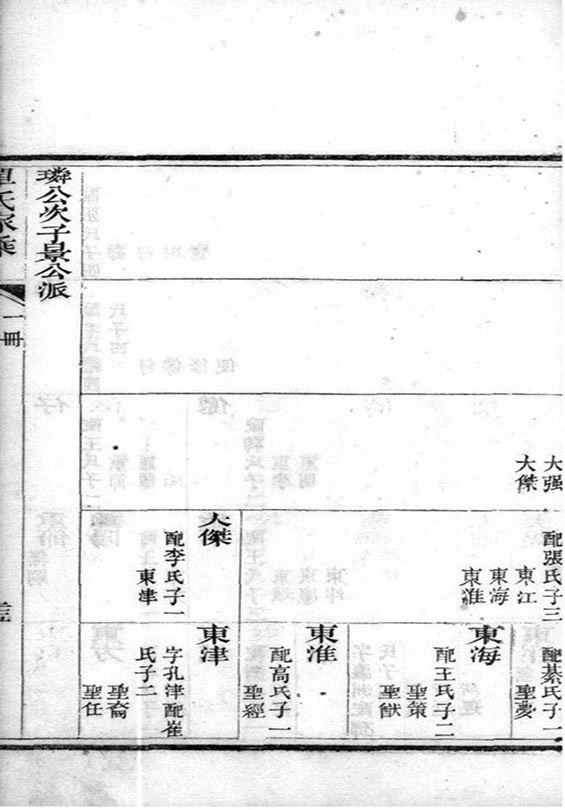 大强
大傑
配張氏子三
東江
東海
東淮
大傑
配李氏子一
東津
配綦氏子一
聖夢
東海
配王氏子二
聖策
聖猷
東淮
配高氏子一
聖經
東津
字孔津配崔
氏子二
聖裔
聖任
璘公次子景公派
氏家乘
一冊